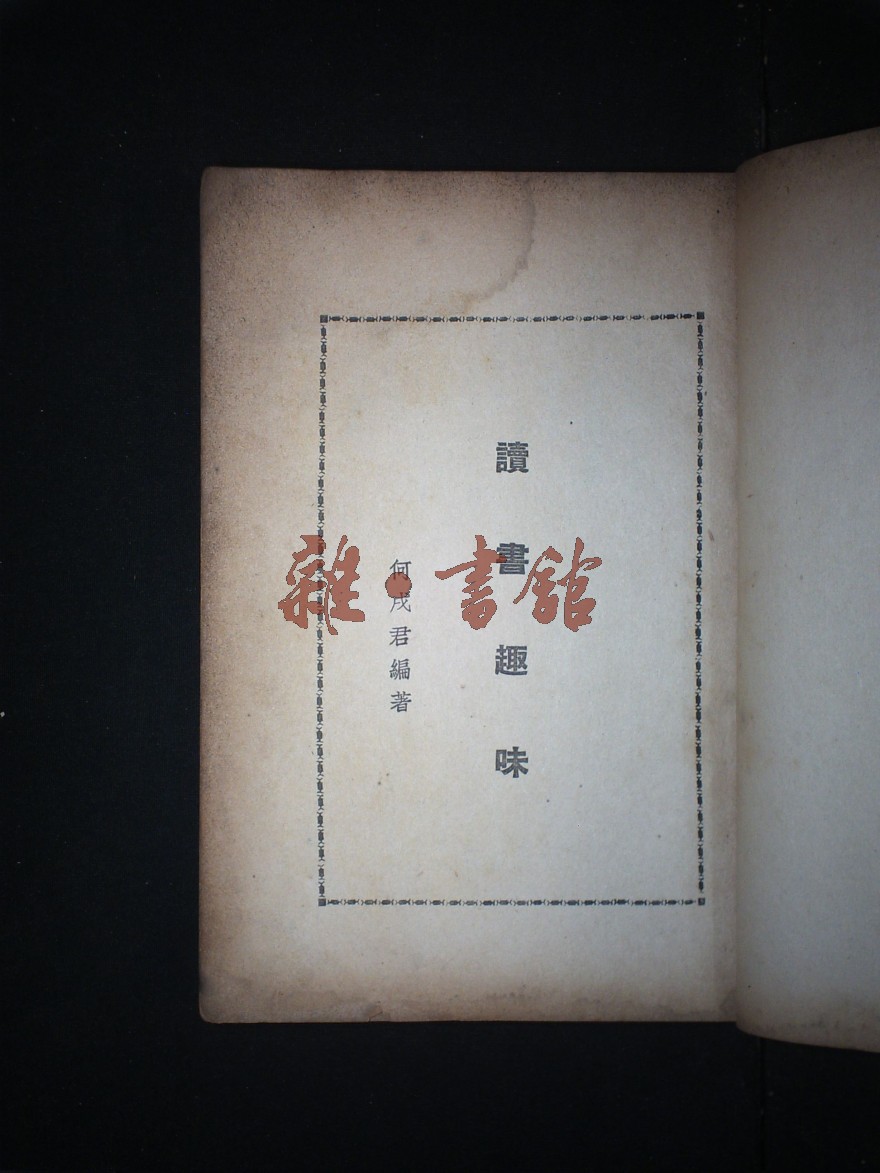 讀書趣味
何戍君編著
雜·書館